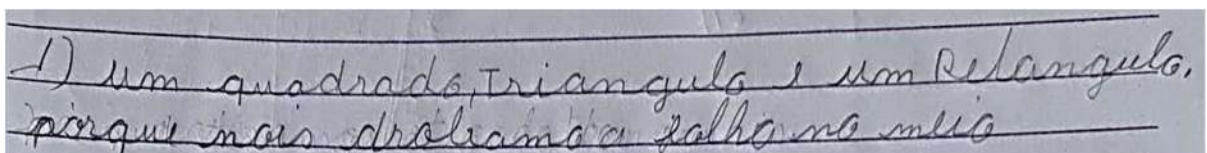 1) um quadrado, Triangulo e um Retangulo,
porque nois drobamo a folha no meio